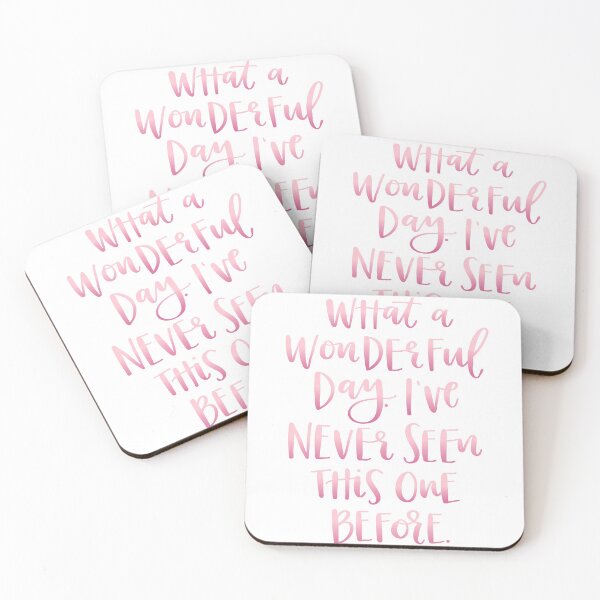 WHAT A
WONDERFUL
DAY. I'VE
WHAT A
WONDERFUL
DAY. I'VE
NEVER SEEN
WHAT A
WONDERFUL
DAY. I'VE
NEVER SEEN
THIS ONE
WHAT A
WONDERFUL
DAY. I'VE
NEVER SEEN
THIS ONE
BEFORE.